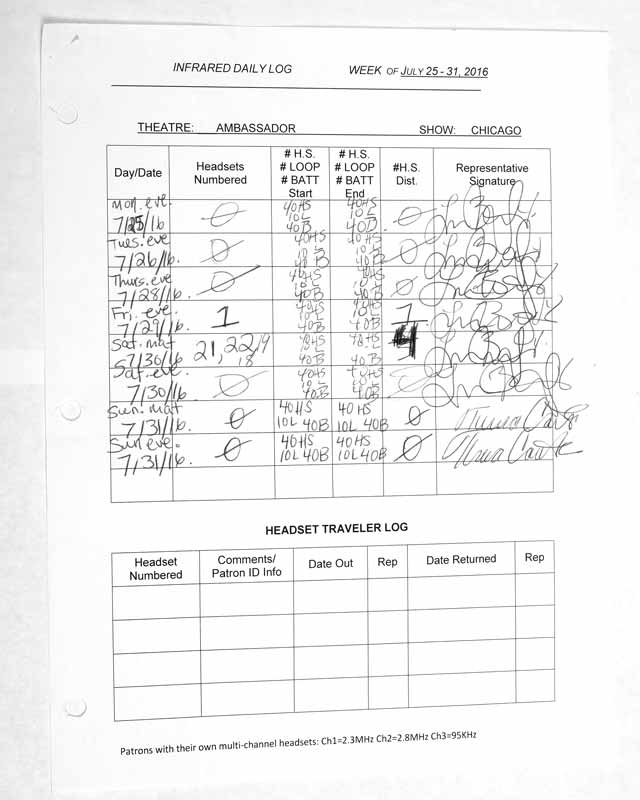 INFRARED DAILY LOG WEEK OF JULY 25 - 31, 2016
THEATRE: AMBASSADOR SHOW: CHICAGO
Day/Date
Headsets
Numbered
# H.S.
# LOOP
# BATT
Start
# H.S.
# LOOP
# BATT
End
#H.S.
Dist.
Representative
Signature
Mon. eve.
7/25/16
0
40HS
10L
40B
40HS
10L
40B
0
Tues. eve
7/26/16.
0
40HS
10L
40B
40HS
10L
40B
0
Thurs. eve
7/28/16.
0
40HS
10L
40B
40HS
10L
40B
0
Fri. eve.
7/29/16.
1
40HS
10L
40B
40HS
10L
40B
1
Sat. mat
7/30/16
21, 22, 19
18
40HS
10L
40B
40HS
10L
40B
4
Sat. eve.
7/30/16
0
40HS
10L
40B
40HS
10L
40B
0
Sun. mat
7/31/16.
0
40HS
10L 40B
40HS
10L 40B
0
Sun eve.
7/31/16.
0
40HS
10L 40B
40HS
10L 40B
0
HEADSET TRAVELER LOG
Headset
Numbered
Comments/
Patron ID Info
Date Out
Rep
Date Returned
Rep
Patrons with their own multi-channel headsets: Ch1=2.3MHz Ch2=2.8MHz Ch3=95KHz